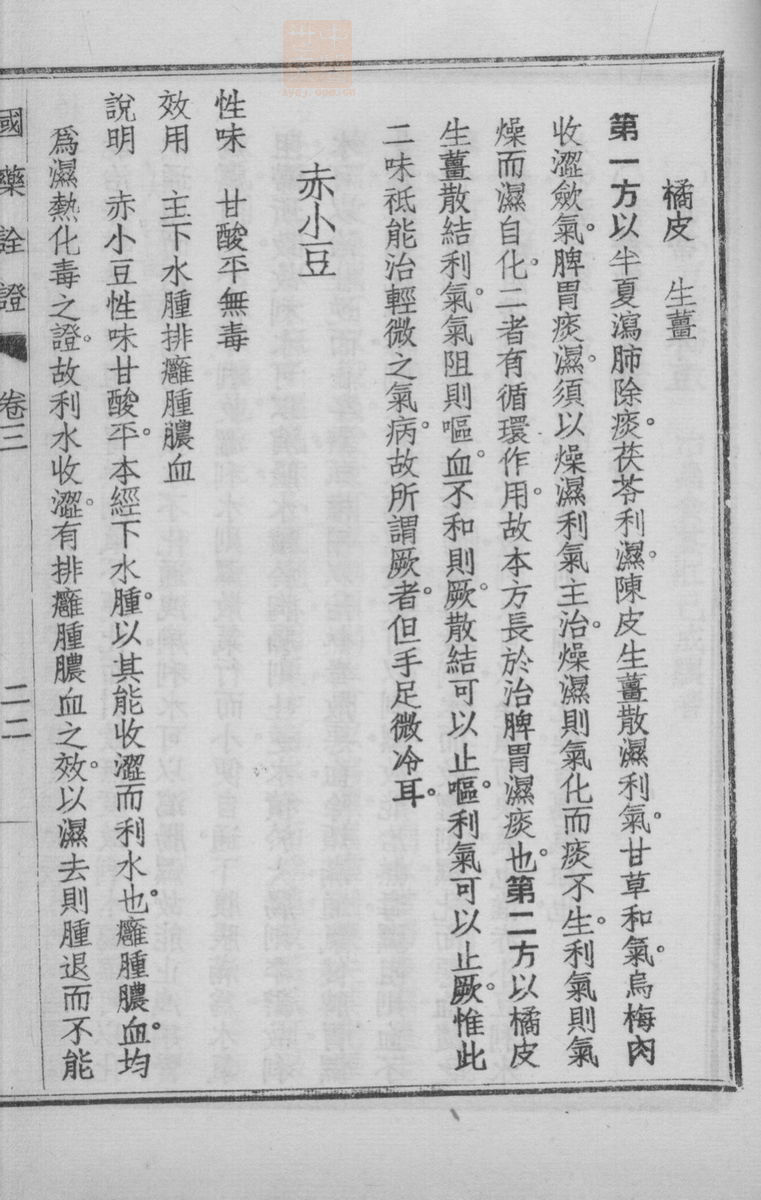 橘皮　生薑
第一方以半夏瀉肺除痰。茯苓利濕。陳皮生薑散濕利氣。甘草和氣。烏梅肉
收澀斂氣。脾胃痰濕。須以燥濕利氣主治。燥濕則氣化而痰不生。利氣則氣
燥而濕自化。二者有循環作用。故本方長於治脾胃濕痰也。第二方以橘皮
生薑散結利氣。氣阻則嘔。血不和則厥。散結可以止嘔。利氣可以止厥。惟此
二味祇能治輕微之氣病。故所謂厥者。但手足微冷耳。
赤小豆
性味　甘酸平無毒
效用　主下水腫排癰腫膿血
說明　赤小豆性味甘酸平。本經下水腫。以其能收澀而利水也。癰腫膿血。均
爲濕熱化毒之證。故利水收澀。有排癰腫膿血之效。以濕去則腫退而不能
國藥詮證　卷三　二二